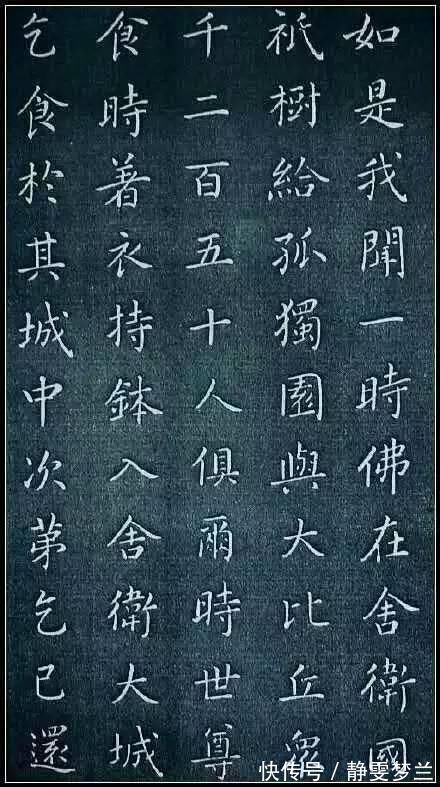 如是我聞一時佛在舍衛國
祇樹給孤獨園與大比丘眾
千二百五十人俱爾時世尊
食時著衣持鉢入舍衛大城
乞食於其城中次第乞已還
快传号/静雯梦兰